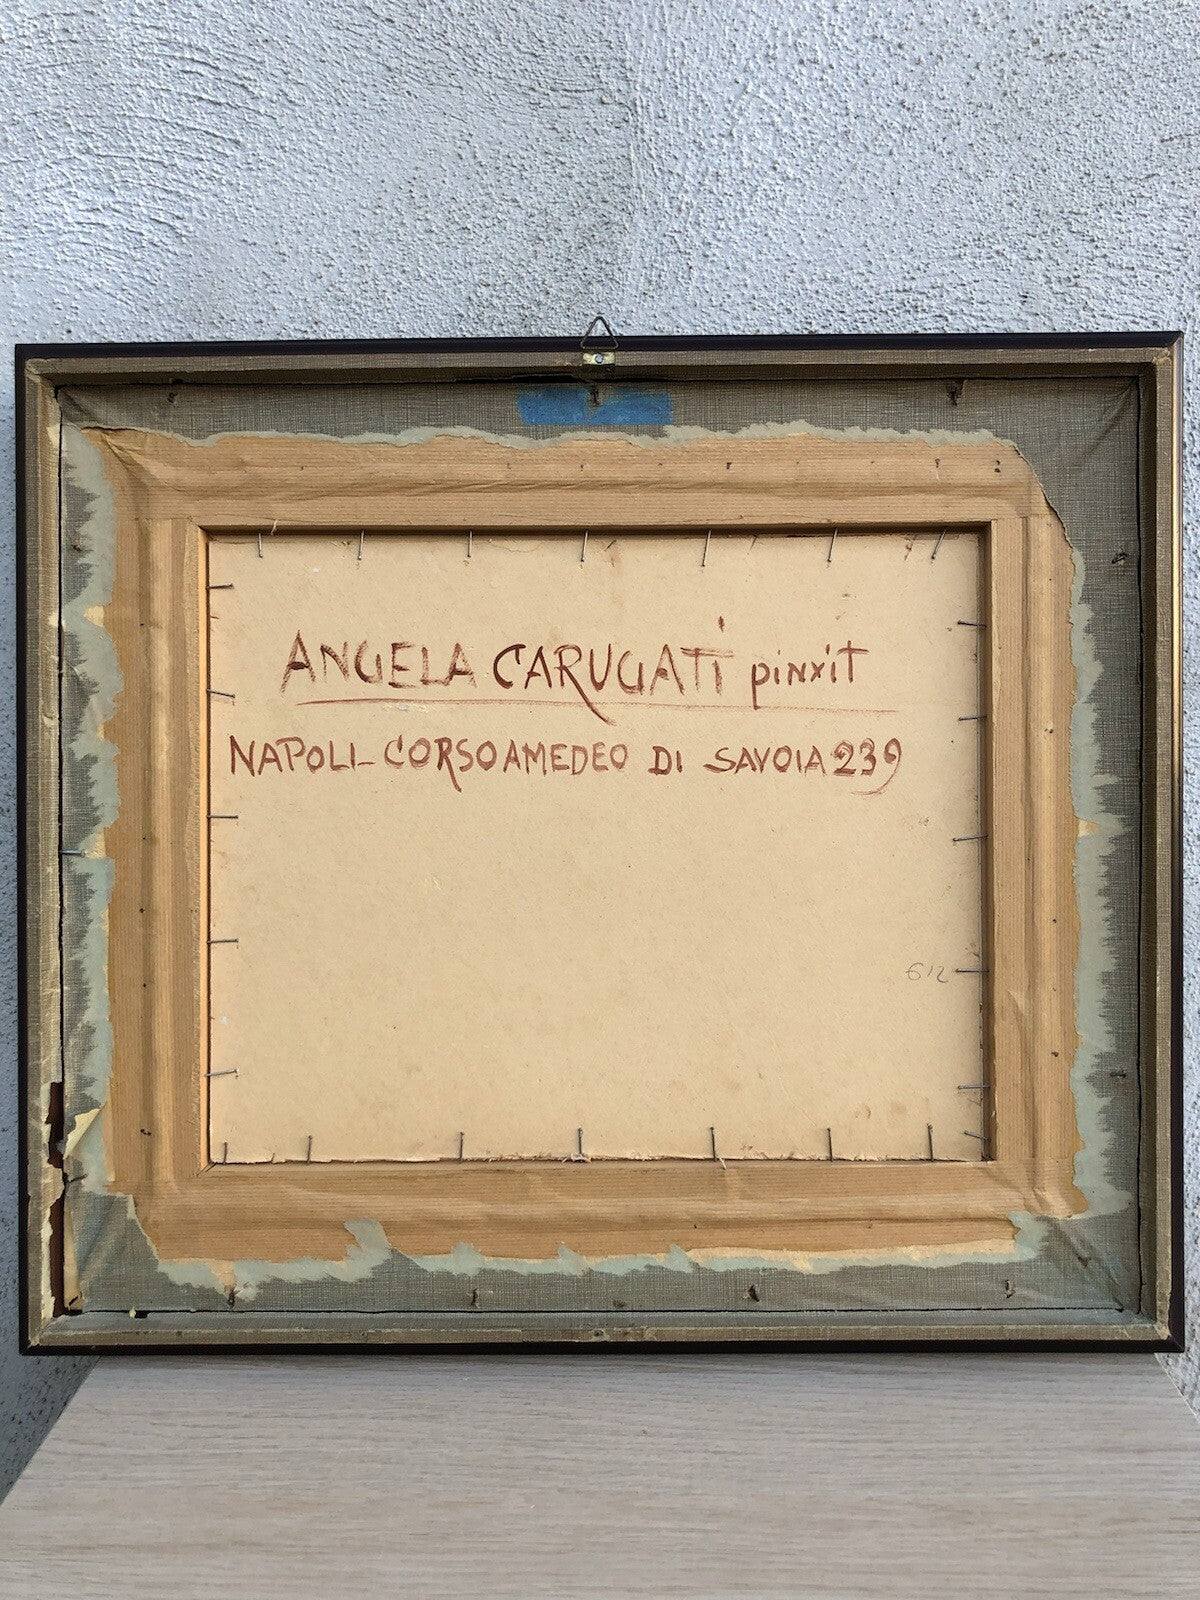 ANGELA CARUGATI pinxit
NAPOLI - CORSO AMEDEO DI SAVOIA 239
612